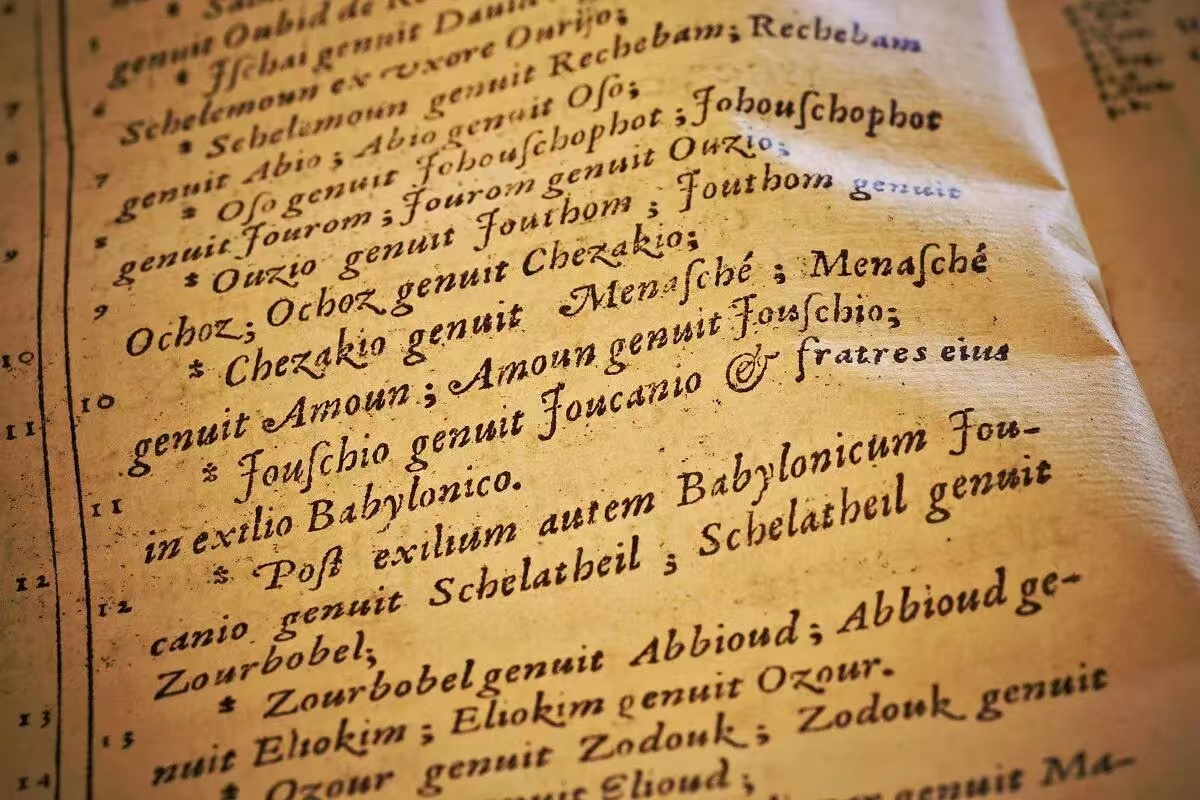 genuit Oubid de
5 * Jſchai genuit Dauid
Schelemoun ex vxore Ourijo;
6 * Schelemoun genuit Rechebam; Rechebam
7 genuit Abio; Abio genuit Oſo;
7 * Oſo genuit Johouſchophot; Johouſchophot
8 genuit Jourom; Jourom genuit Ouzio;
8 * Ouzio genuit Jouthom; Jouthom genuit
9 Ochoz; Ochoz genuit Chezakio;
9 * Chezakio genuit Menaſché; Menaſché
10 10 genuit Amoun; Amoun genuit Jouſchio;
11 * Jouſchio genuit Joucanio & fratres eius
11 in exilio Babylonico.
* Poſt exilium autem Babylonicum Jou-
12 12 canio genuit Schelatheil; Schelatheil genuit
Zourbobel;
* Zourbobel genuit Abbioud; Abbioud ge-
13 13 nuit Eliokim; Eliokim genuit Ozour.
14 * Ozour genuit Zodouk; Zodouk genuit
genuit Elioud; Ma-